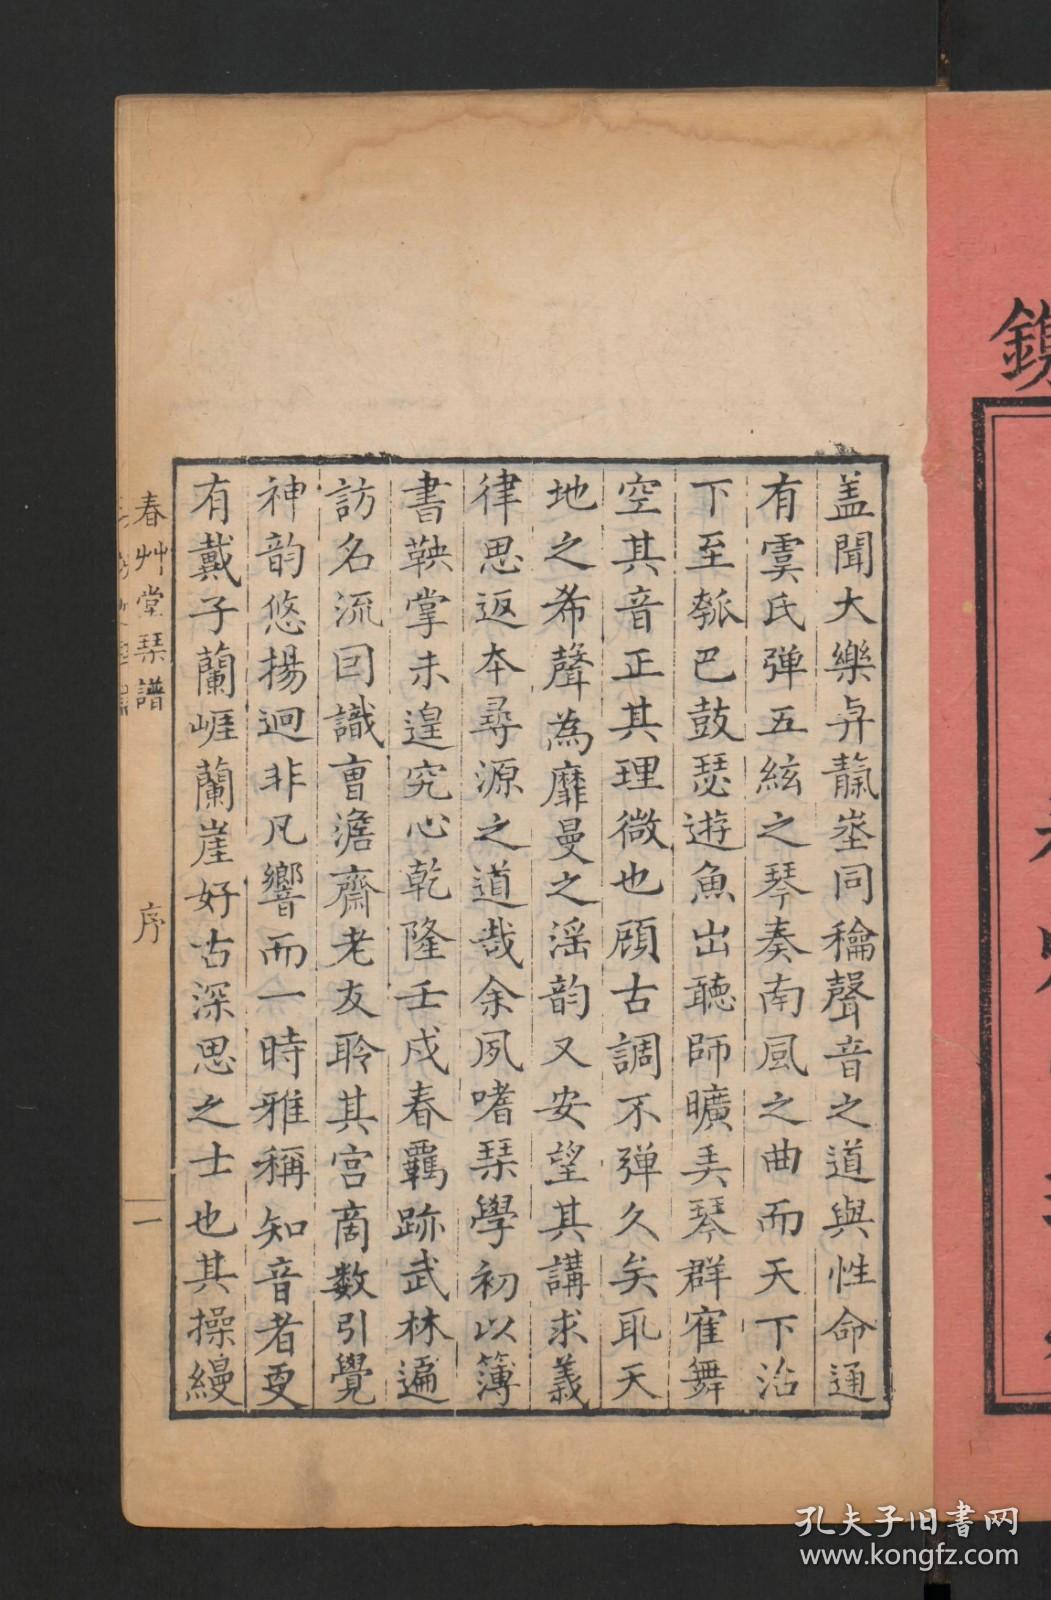 鐫
蓋聞大樂与靜壑同籥聲音之道與性命通
有虞氏弹五絃之琴奏南風之曲而天下治
下至瓠巴鼓瑟遊魚出聽師曠奏琴群寉舞
空其音正其理微也顧古調不弹久矣耴天
地之希聲為靡曼之淫韵又安望其講求義
律思返本尋源之道哉余夙嗜琹學初以簿
書鞅掌未遑究心乾隆壬戌春羈跡武林遍
訪名流回識曺澹齋老友聆其宫商数引覺
神韵悠揚迥非凡響而一時雅稱知音者更
有戴子蘭崕蘭崖好古深思之士也其操縵
春艸堂琹譜
序
一
孔夫子旧書网
www.kongfz.com